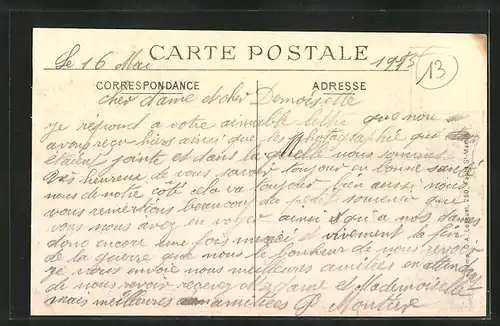 CARTE POSTALE
Le 16 Mai 1915
13
CORRESPONDANCE ADRESSE
cher dame et cher Demoiselle
je répond a votre aimable lettre que nou
avons reçu hiers ainsi que les photographie qui
étaient jointe et dans la quelle nous sommes
très heureux de vous savoir toujour en bonne santé
nous de notre coté cela va toujour bien aussi nous
vous remertions beaucoup du petit souvenir que
vous nous avez en voyer ainsi qu'a nos dames
donc encore une fois merci et vivement la fin
de la guerre que nous le bonheur de nous revoir
je vous envoie nous meilleures amitiées en attendant
de nous revoir recevez Madame et Mademoiselle
mais meilleures amitiées G Moutier